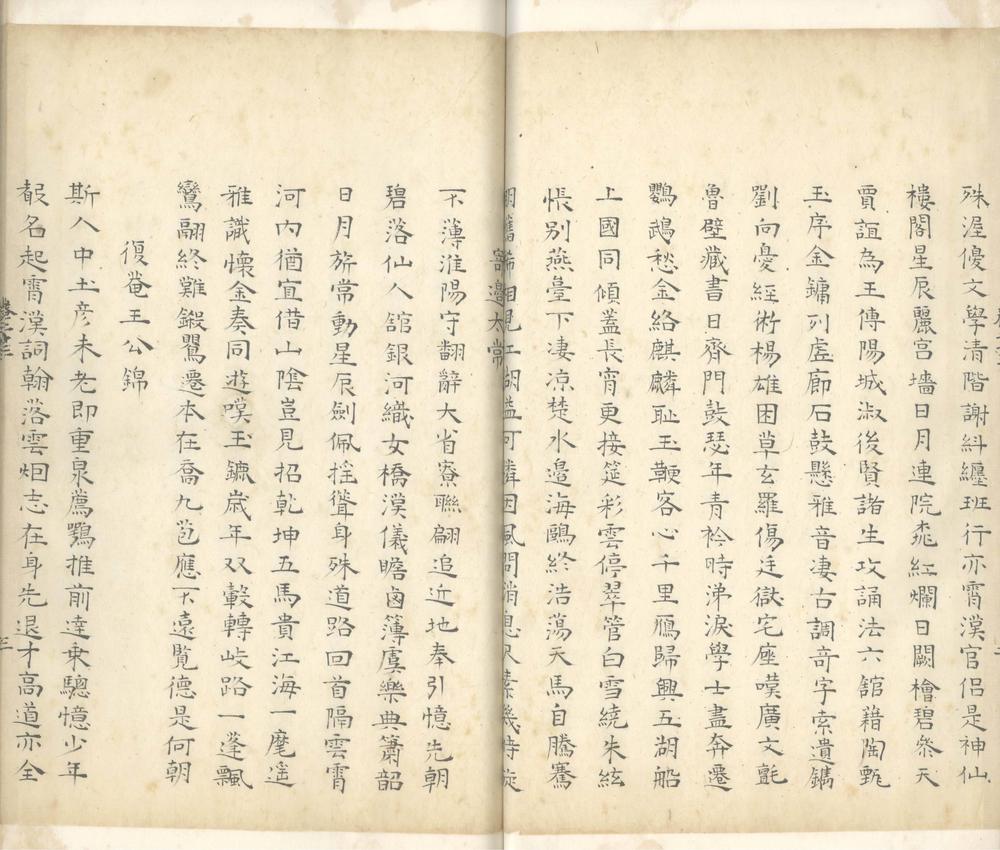 殊渥優文學清階謝糾纏班行亦霄漢官侶是神仙
樓閣星辰麗宮墻日月連院桃紅爛日闕檜碧參天
賈誼為王傳陽城淑後賢諸生攻誦法六舘藉陶甄
玉序金鏞列虛廊石鼓懸雅音淒古調奇字索遺鐫
劉向憂經術楊雄困草玄羅傷廷尉宅座嘆廣文氈
魯壁藏書日齊門鼓瑟年青衿時涕淚學士盡奔遷
鸚鵡愁金絡麒麟耻玉鞭客心千里鴈歸興五湖船
上國同傾蓋長宵更接筵彩雲停翠管白雪繞朱絃
悵別燕臺下淒凉楚水邉海鷗終浩蕩天馬自騰騫
寄邊太常
不薄淮陽守翻辭大省寮聯翩追近地奉引憶先朝
碧落仙人舘銀河織女橋漢儀瞻鹵簿虞樂典簫韶
日月旂常動星辰劍佩揺聳身殊道路回首隔雲霄
河内猶宜借山陰豈見招乾坤五馬貴江海一麾遥
雅識懷金奏同遊嘆玉鑣歲年双轂轉岐路一蓬飄
鸞翮終難鍛鶯遷本在喬九苞應不遠覧德是何朝
復菴王公錦
斯人中土彦未老即重泉薦鶚推前達乗驄憶少年
報名起霄漢詞翰落雲烟志在身先退才高道亦全